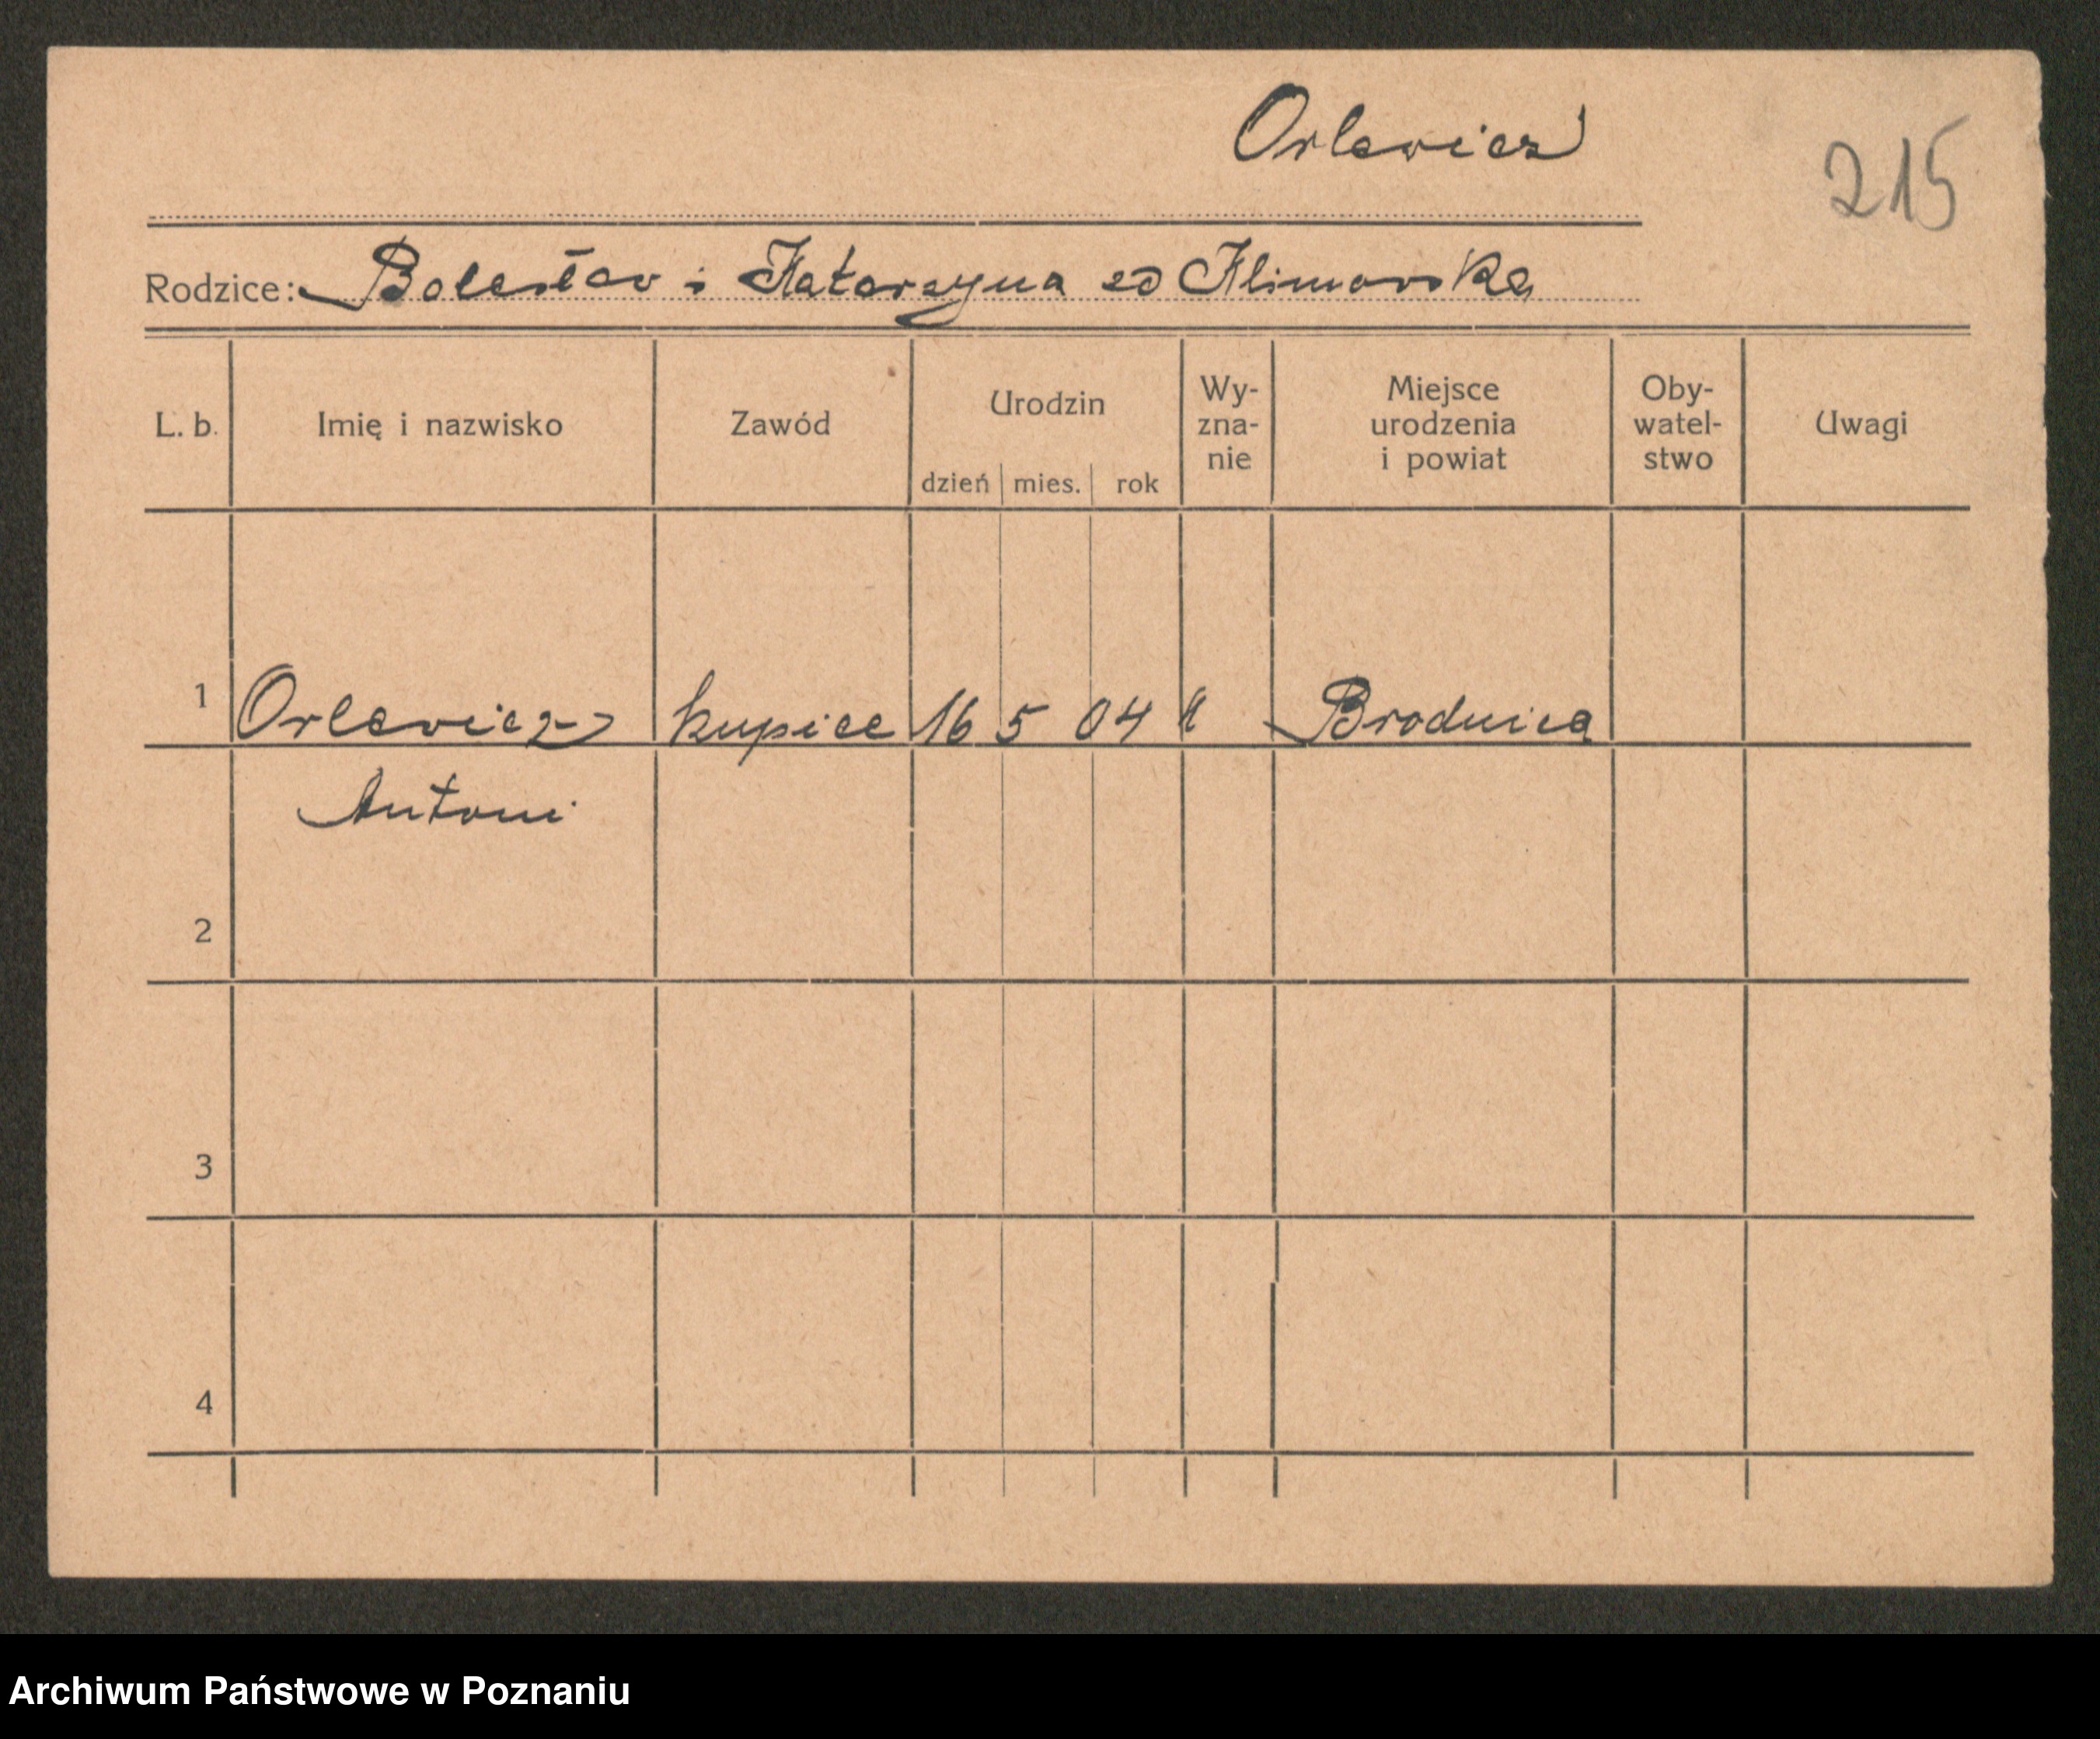 Orlewicz
215
Rodzice: Bolesław i Katarzyna zd Klimowska
L. b. Imię i nazwisko Zawód Urodzin dzień mies. rok Wy-zna-nie Miejsce urodzenia i powiat Oby-watel-stwo Uwagi
1 Orlewicz kupiec 16 5 04 Brodnica
Antoni
2
3
4
Archiwum Państwowe w Poznaniu